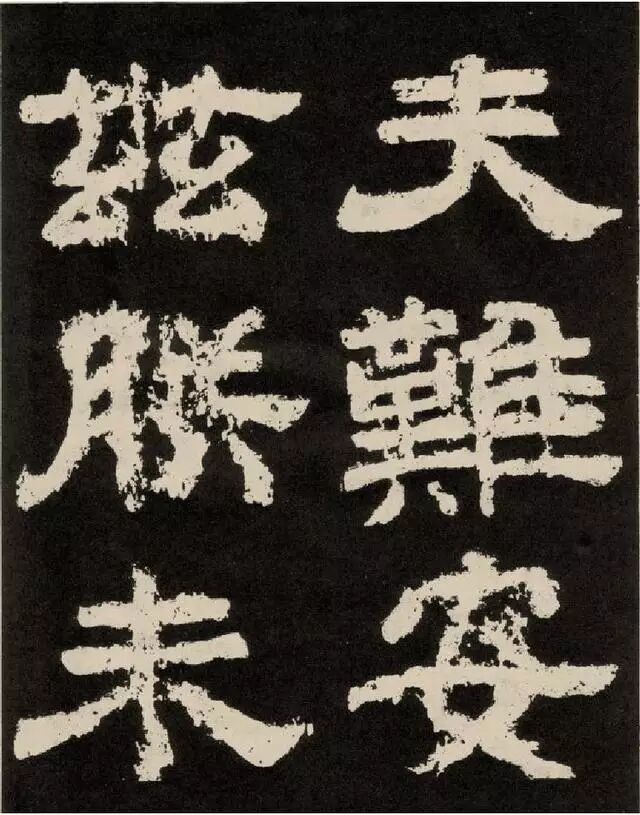 夫難安
玆朕未